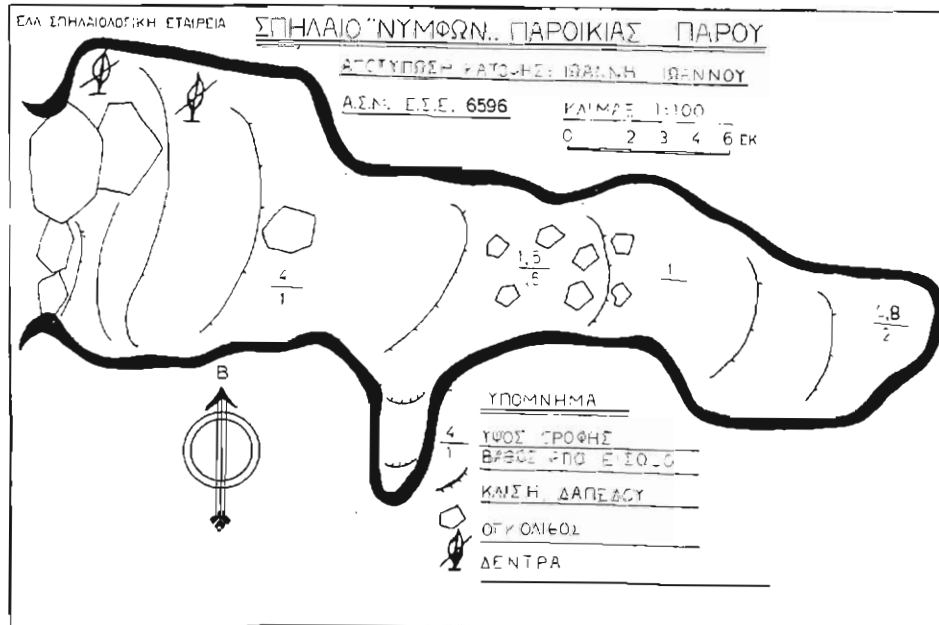 ΕΛΛ ΣΠΗΛΑΙΟΛΟΓΙΚΗ ΕΤΑΙΡΕΙΑ
ΣΠΗΛΑΙΟ "ΝΥΜΦΩΝ.. ΠΑΡΟΙΚΙΑΣ ΠΑΡΟΥ
ΑΠΟΤΥΠΩΣΗ ΚΑΤΟΨΗΣ: ΙΩΑΝΝΗ ΙΩΑΝΝΟΥ
Α.Σ.Μ. Ε.Σ.Ε. 6596
ΚΛΙΜΑΞ 1:100
0 2 3 4 6 ΕΚ
4
1
1,5
,5
1
2
Β
ΥΠΟΜΝΗΜΑ
4
1
ΥΨΟΣ ΟΡΟΦΗΣ
ΒΑΘΟΣ ΑΠΟ
ΚΛΙΣΗ ΔΑΠΕΔΟΥ
ΟΓΚΟΛΙΘΟΣ
ΔΕΝΤΡΑ